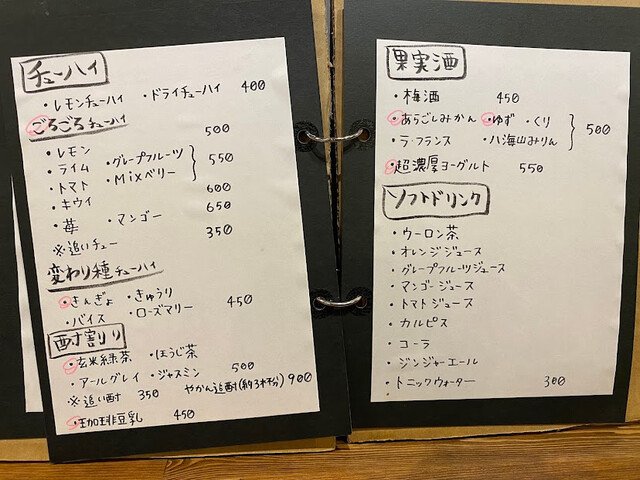 チューハイ
・レモンチューハイ ・ドライチューハイ 400
ごろごろチューハイ
500
・レモン
・ライム ・グレープフルーツ 550
・トマト ・Mixベリー
・キウイ 600
・苺 ・マンゴー 650
※追いチュー 350
変わり種チューハイ
・きんぎょ ・きゅうり 450
・バイス ・ローズマリー
酎割り
・玄米緑茶 ・ほうじ茶
・アールグレイ ・ジャスミン 500
※追い酎 350 やかん追酎(約3杯分) 900
・珈琲豆乳 450
果実酒
・梅酒 450
・あらごしみかん ・ゆず ・くり 500
・ラ・フランス ・八海山みりん
・超濃厚ヨーグルト 550
ソフトドリンク
・ウーロン茶
・オレンジジュース
・グレープフルーツジュース
・マンゴージュース
・トマトジュース
・カルピス
・コーラ
・ジンジャーエール
・トニックウォーター 300